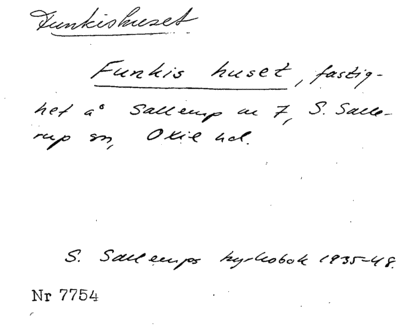 Funkishuset
Funkis huset, fastig-
het å Sallerup nr 7, S. Salle-
rup sn, Oxie hd.
S. Sallerups kyrkobok 1935-48.
Nr 7754